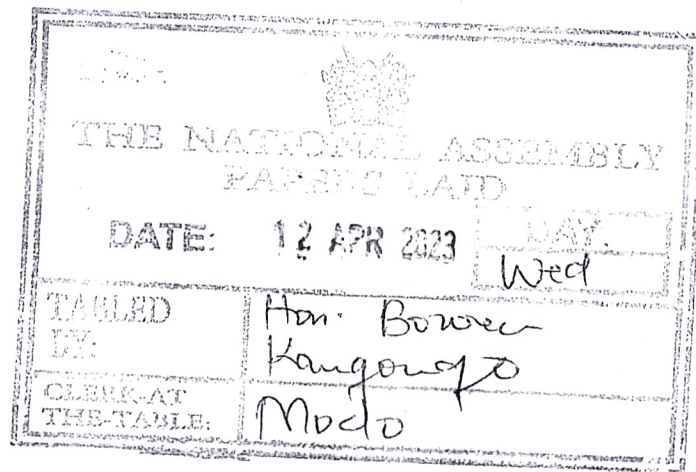 THE NATIONAL ASSEMBLY
PAPERS LAID
DATE: 12 APR 2023 DAY.
Wed
TABLED BY: Hon. Bowen
Kangongo
CLERK-AT THE-TABLE: Modo